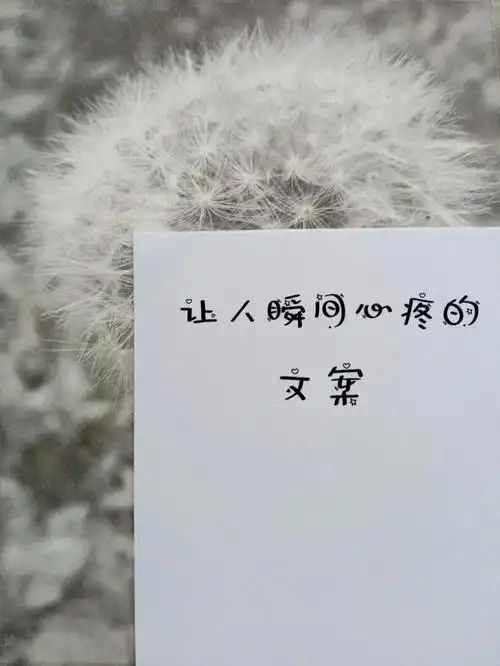 让人瞬间心疼的
文案